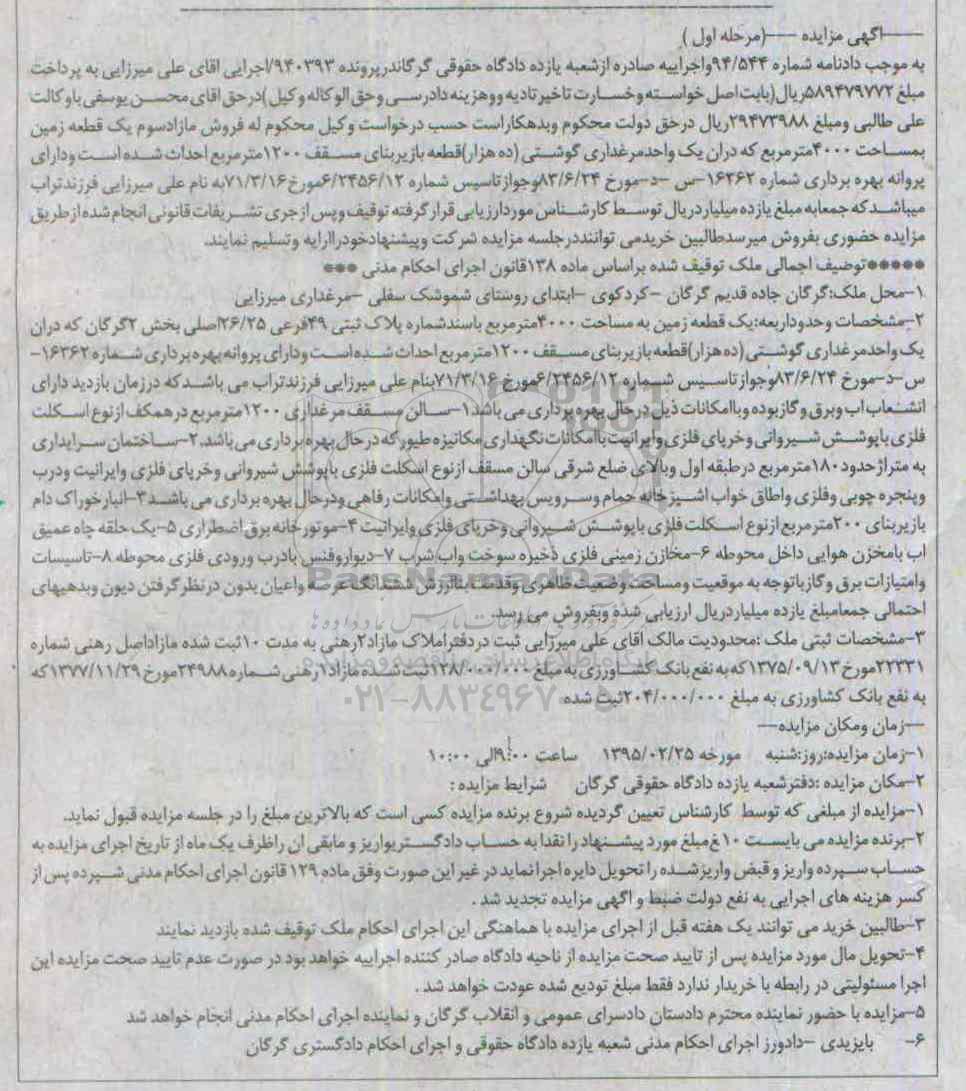 ——آگهی مزایده ——(مرحله اول )
به موجب دادنامه شماره ۹۴/۵۴۴واجراییه صادره ازشعبه یازده دادگاه حقوقی گرگاندرپرونده ۹۴۰۳۹۳/اجرایی اقای علی میرزایی به پرداخت
مبلغ ۵۸۹۴۷۹۷۷۲ریال(بابت اصل خواسته وخسارت تاخیرتادیه ووهزینه دادرسی وحق الوکاله وکیل )درحق اقای محسن یوسفی باوکالت
علی طالبی ومبلغ ۲۹۴۷۳۹۸۸ریال درحق دولت محکوم وبدهکاراست حسب درخواست وکیل محکوم له فروش مازادسوم یک قطعه زمین
بمساحت ۴۰۰۰مترمربع که دران یک واحدمرغداری گوشتی (ده هزار)قطعه بازیربنای مسقف ۱۲۰۰مترمربع احداث شده است ودارای
پروانه بهره برداری شماره ۱۶۳۶۲-س -د-مورخ ۸۳/۶/۲۴وجوازتاسیس شماره ۶/۲۴۵۶/۱۲مورخ ۷۱/۳/۱۶به نام علی میرزایی فرزندتراب
میباشدکه جمعابه مبلغ یازده میلیاردریال توسط کارشناس موردارزیابی قرارگرفته توقیف وپس ازجری تشریفات قانونی انجام شده ازطریق
مزایده حضوری بفروش میرسدطالبین خریدمی توانندرجلسه مزایده شرکت وپیشنهادخودراارایه وتسلیم نمایند.
*****توصیف اجمالی ملک توقیف شده براساس ماده ۱۳۸قانون اجرای احکام مدنی ***
۱-محل ملک:گرگان جاده قدیم گرگان -کردکوی -ابتدای روستای شموشک سفلی -مرغداری میرزایی
۲-مشخصات وحدوداربعه:یک قطعه زمین به مساحت ۴۰۰۰مترمربع باسندشماره پلاک ثبتی ۴۹فرعی ۲۶/۲۵اصلی بخش ۲گرگان که دران
یک واحدمرغداری گوشتی (ده هزار)قطعه بازیربنای مسقف ۱۲۰۰مترمربع احداث شده است ودارای پروانه بهره برداری شماره ۱۶۳۶۲-
س-د-مورخ ۸۳/۶/۲۴وجوازتاسیس شماره ۶/۲۴۵۶/۱۲مورخ ۷۱/۳/۱۶بنام علی میرزایی فرزندتراب می باشدکه درزمان بازدید دارای
انشعاب اب وبرق وگازبوده وباامکانات ذیل درحال بهره برداری می باشد ۱-سالن مسقف مرغداری ۱۲۰۰مترمربع درهمکف ازنوع اسکلت
فلزی باپوشش شیروانی وخرپای فلزی وایرانیت باامکانات نگهداری مکانیزه طیورکه درحال بهره برداری می باشد.۲-ساختمان سرایداری
به متراژحدود۱۸۰مترمربع درطبقه اول وبالای ضلع شرقی سالن مسقف ازنوع اسکلت فلزی باپوشش شیروانی وخرپای فلزی وایرانیت ودرب
وپنجره چوبی وفلزی واطاق خواب اشپزخانه حمام وسرویس بهداشتی وامکانات رفاهی ودرحال بهره برداری می باشد ۳-انبارخوراک دام
بازیربنای ۲۰۰مترمربع ازنوع اسکلت فلزی باپوشش شیروانی وخرپای فلزی وایرانیت ۴-موتورخانه برق اضطراری ۵-یک حلقه چاه عمیق
اب بامخزن هوایی داخل محوطه ۶-مخازن زمینی فلزی ذخیره سوخت واب شرب ۷-دیواروفنس بادرب ورودی فلزی محوطه ۸-تاسیسات
وامتیازات برق وگازباتوجه به موقعیت ومساحت وضعیت ظاهری وقدمت بناارزش ششدانگ عرصه واعیان بدون درنظرگرفتن دیون وبدهیهای
احتمالی جمعامبلغ یازده میلیاردریال ارزیابی شده وبفروش می رسد.
۳-مشخصات ثبتی ملک :محدودیت مالک اقای علی میرزایی ثبت دردفتراملاک مازاد۲رهنی به مدت ۱۰ثبت شده مازاداصل رهنی شماره
۲۲۳۳۱مورخ ۱۳۷۵/۰۹/۱۳که به نفع بانک کشاورزی به مبلغ ۱۲۸/۰۰۰/۰۰۰ثبت شده مازاد۱رهنی شماره ۲۴۹۸۸مورخ ۱۳۷۷/۱۱/۲۹که
به نفع بانک کشاورزی به مبلغ ۲۰۴/۰۰۰/۰۰۰ثبت شده
—زمان ومکان مزایده—
۱-زمان مزایده:روز:شنبه مورخه ۱۳۹۵/۰۲/۲۵ ساعت ۹:۰۰الی ۱۰:۰۰
۲-مکان مزایده :دفترشعبه یازده دادگاه حقوقی گرگان شرایط مزایده :
۱-مزایده از مبلغی که توسط کارشناس تعیین گردیده شروع برنده مزایده کسی است که بالاترین مبلغ را در جلسه مزایده قبول نماید.
۲-برنده مزایده می بایست ۱۰ غمبلغ مورد پیشنهاد را نقدا به حساب دادگستری واریز و مابقی ان راظرف یک ماه از تاریخ اجرای مزایده به
حساب سپرده واریز و قبض واریزشده را تحویل دایره اجرا نماید در غیر این صورت وفق ماده ۱۲۹ قانون اجرای احکام مدنی شپرده پس از
کسر هزینه های اجرایی به نفع دولت ضبط و اگهی مزایده تجدید شد .
۳-طالبین خرید می توانند یک هفته قبل از اجرای مزایده با هماهنگی این اجرای احکام ملک توقیف شده بازدید نمایند
۴-تحویل مال مورد مزایده پس از تایید صحت مزایده از ناحیه دادگاه صادر کننده اجراییه خواهد بود در صورت عدم تایید صحت مزایده این
اجرا مسئولیتی در رابطه با خریدار ندارد فقط مبلغ تودیع شده عودت خواهد شد .
۵-مزایده با حضور نماینده محترم دادستان دادسرای عمومی و انقلاب گرگان و نماینده اجرای احکام مدنی انجام خواهد شد
۶- بایزیدی -دادورز اجرای احکام مدنی شعبه یازده دادگاه حقوقی و اجرای احکام دادگستری گرگان
ParsNamadData
۰۲۱-۸۸۳۴۹۶۷۰-۵